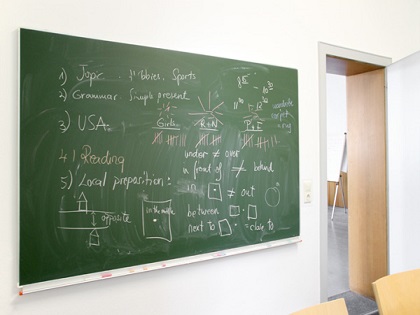 1) Topic . Hobbies. Sports
2) Grammar. Simple present
3) USA.
Girls R+N P+E
4) Reading
under ≠ over
in front of ≠ behind
5) Local preposition:
in ≠ out
opposite
in the middle
between
next to = close to